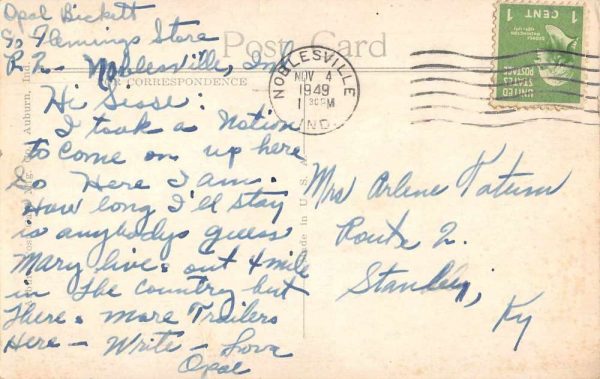 Opal Bickett
c/o Flamings Store
R 2 - Noblesville, Ind
Post Card
CORRESPONDENCE
Hi Sisse:
I took a Notion
to come on up here
so Here I am.
How long I'll stay
is anybodys guess
Mary lives out 4 mile
in the country but
There's more Trailers
Here - Write - Love
Opal
Auburn, Ind
Made in U. S. A.
NOBLESVILLE
NOV 4
1949
1 30PM
IND.
UNITED
STATES
POSTAGE
1 CENT 1
Mrs Arlene Tatum
Route 2.
Stanley,
Ky